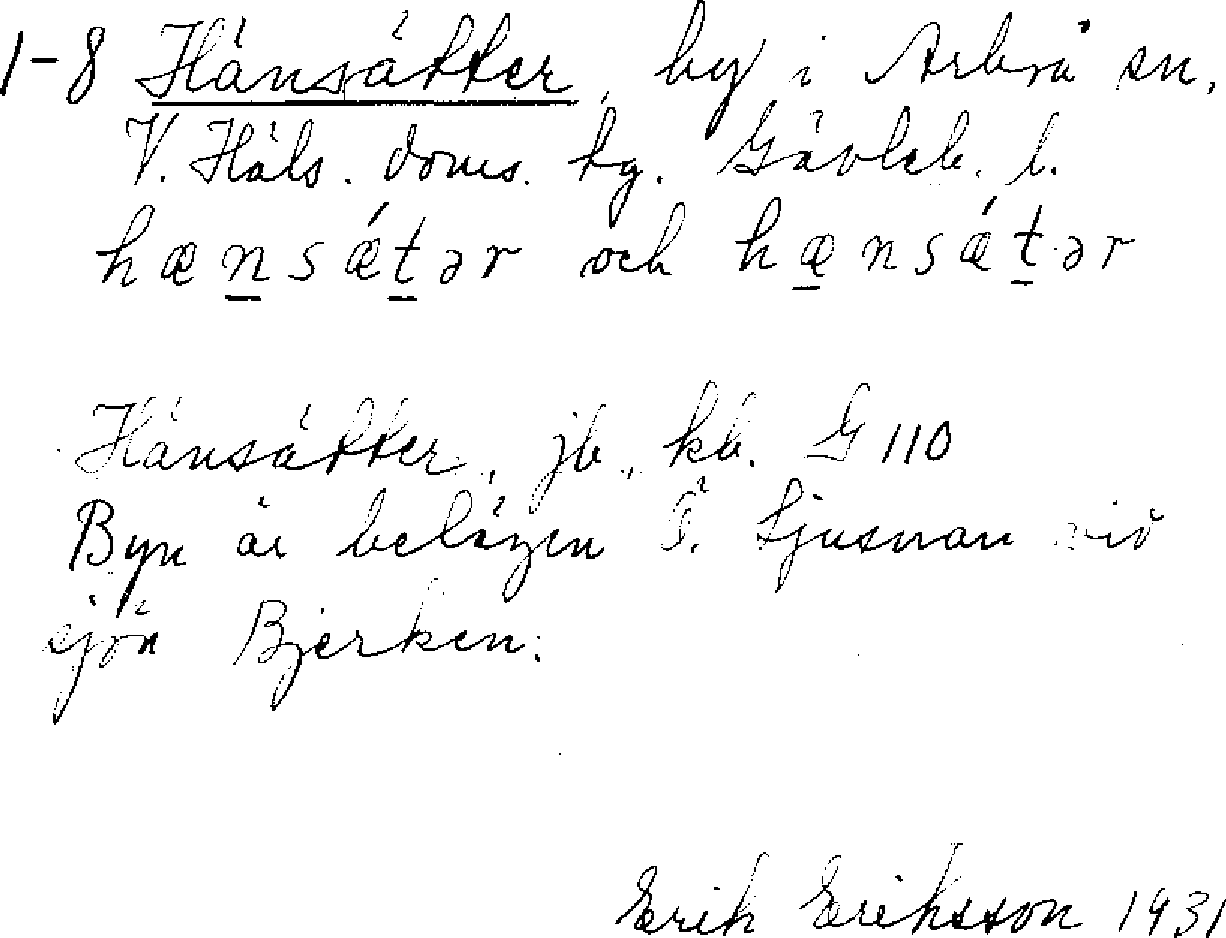 1-8 Hänsätter, by i Arbrå sn,
V. Häls. doms. tg. Gävleb. l.
hæn̲sǽt̲ər och hæ̲nsǽt̲ər
Hänsätter, jb, kb. G 110
Byn är belägen Ö. Ljusnan vid
sjön Bjerken.
Erik Eriksson 1931